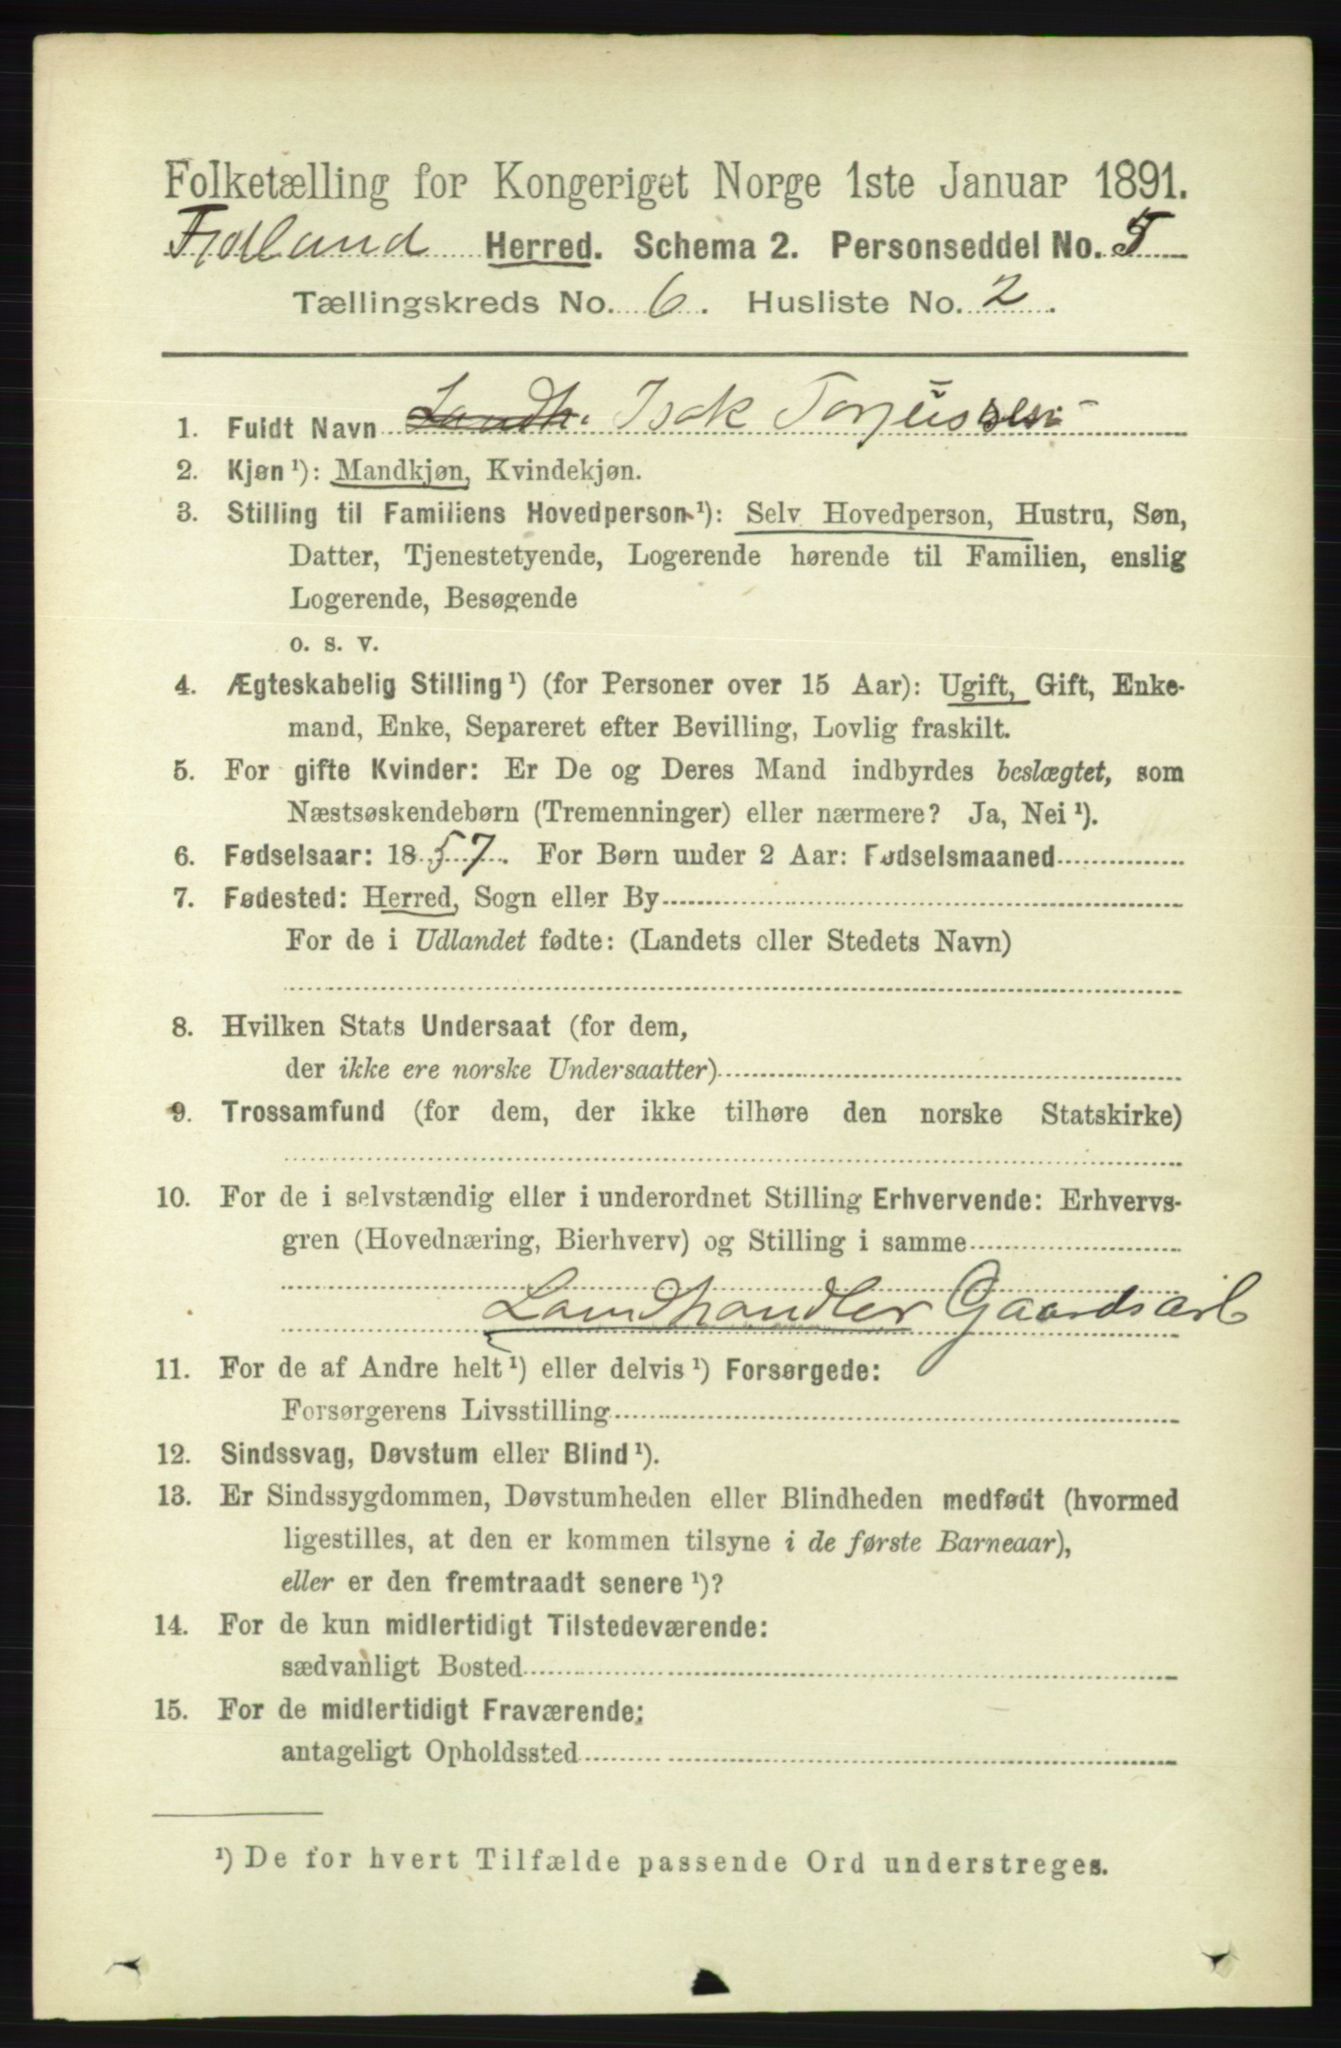 Folketælling for Kongeriget Norge 1ste Januar 1891.
Fjotland Herred. Schema 2. Personseddel No. 5
Tællingskreds No. 6. Husliste No. 2.
1. Fuldt Navn Landh. Isak Torjussen
2. Kjøn ¹): Mandkjøn, Kvindekjøn.
3. Stilling til Familiens Hovedperson ¹): Selv Hovedperson, Hustru, Søn,
Datter, Tjenestetyende, Logerende hørende til Familien, enslig
Logerende, Besøgende
o. s. v.
4. Ægteskabelig Stilling ¹) (for Personer over 15 Aar): Ugift, Gift, Enke-
mand, Enke, Separeret efter Bevilling, Lovlig fraskilt.
5. For gifte Kvinder: Er De og Deres Mand indbyrdes beslægtet, som
Næstsøskendebørn (Tremenninger) eller nærmere? Ja, Nei ¹).
6. Fødselsaar: 1857. For Børn under 2 Aar: Fødselsmaaned
7. Fødested: Herred, Sogn eller By
For de i Udlandet fødte: (Landets eller Stedets Navn)
8. Hvilken Stats Undersaat (for dem,
der ikke ere norske Undersaatter)
9. Trossamfund (for dem, der ikke tilhøre den norske Statskirke)
10. For de i selvstændig eller i underordnet Stilling Erhvervende: Erhvervs-
gren (Hovednæring, Bierhverv) og Stilling i samme
Landhandler Gaardsarb
11. For de af Andre helt ¹) eller delvis ¹) Forsørgede:
Forsørgerens Livsstilling
12. Sindssvag, Døvstum eller Blind ¹).
13. Er Sindssygdommen, Døvstumheden eller Blindheden medfødt (hvormed
ligestilles, at den er kommen tilsyne i de første Barneaar),
eller er den fremtraadt senere ¹)?
14. For de kun midlertidigt Tilstedeværende:
sædvanligt Bosted
15. For de midlertidigt Fraværende:
antageligt Opholdssted
¹) De for hvert Tilfælde passende Ord understreges.